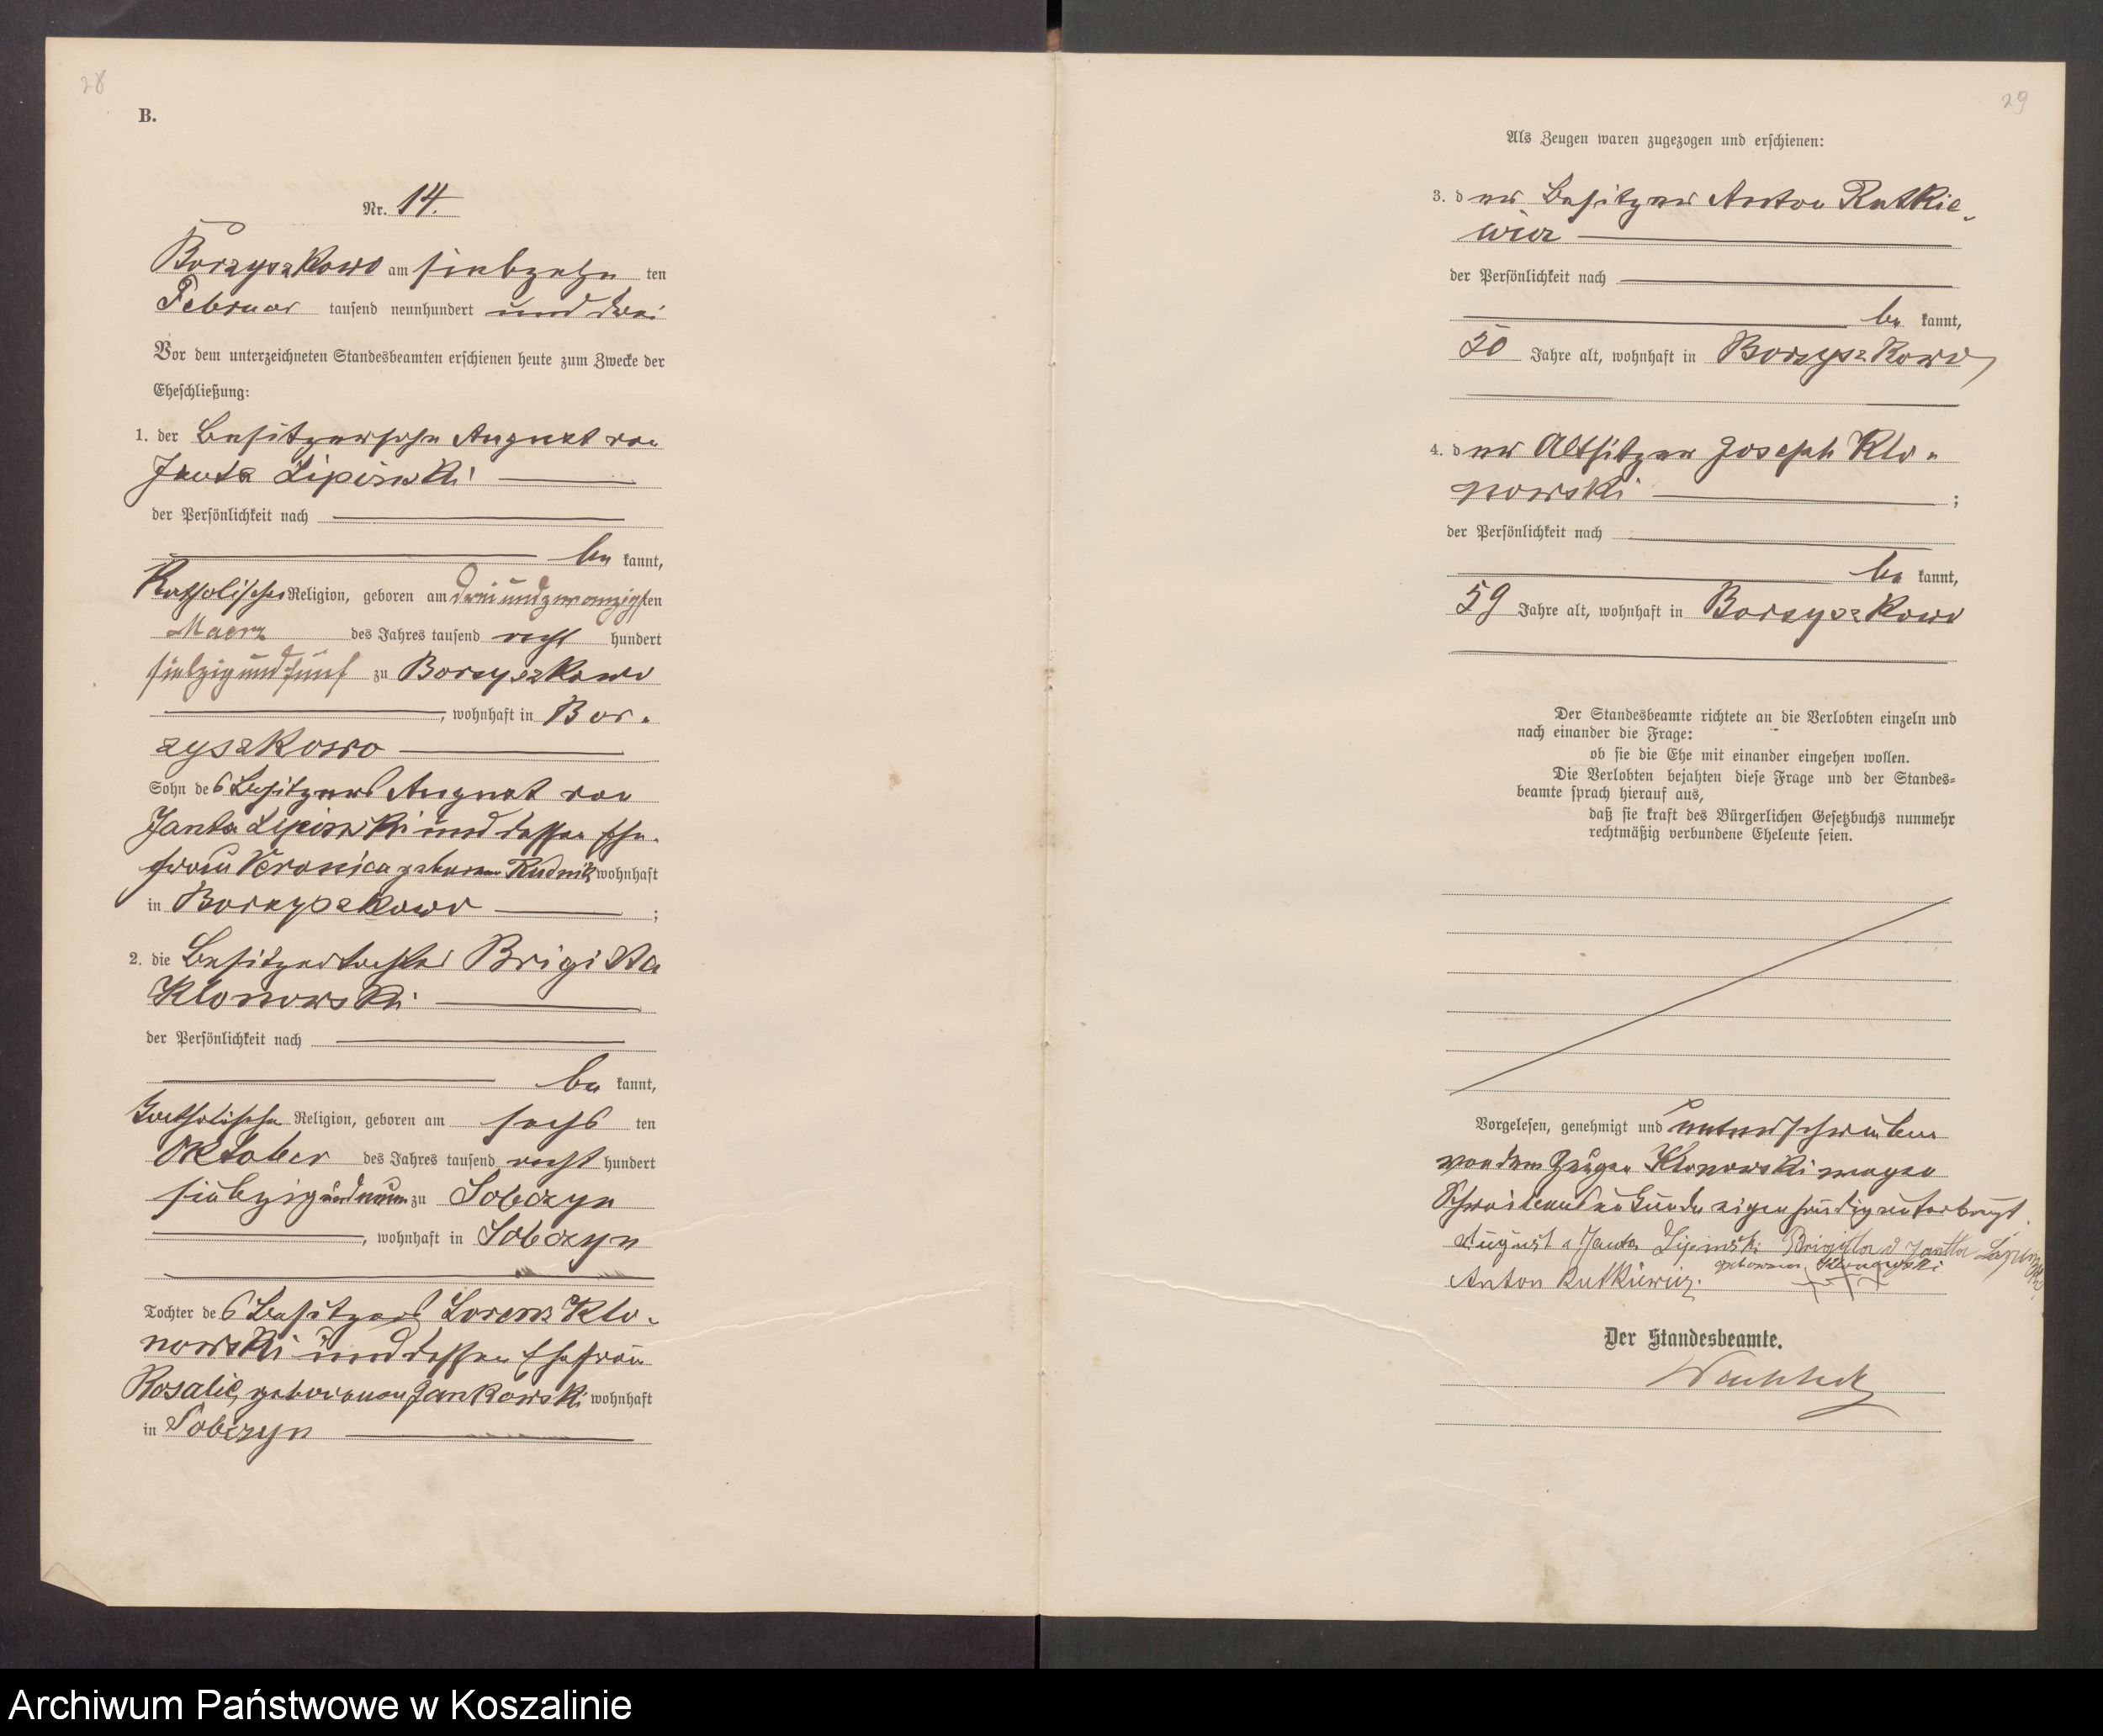 28
B.
Nr. 14.
Borzyszkowo am siebzehn ten
Februar tausend neunhundert und drei
Vor dem unterzeichneten Standesbeamten erschienen heute zum Zwecke der
Eheschließung:
1. der Besitzersohn August von
Janta Lipinski
der Persönlichkeit nach
be kannt,
Katholischer Religion, geboren am dreiundzwanzigsten
Maerz des Jahres tausend acht hundert
siebzig und fünf zu Borzyszkowo
, wohnhaft in Bor-
zyszkowo
Sohn des Besitzers August von
Janta Lipinski und dessen Ehe-
frau Veronica geborenen Rudnik wohnhaft
in Borzyszkowo ;
2. die Besitzertochter Brigitta
Klonowski
der Persönlichkeit nach
be kannt,
Katholischer Religion, geboren am sechs ten
Oktober des Jahres tausend acht hundert
siebzig und neun zu Sobczyn
, wohnhaft in Sobczyn
Tochter des Besitzers Lorenz Klo-
nowski und dessen Ehefrau
Rosalie, geborenen Jankowski wohnhaft
in Sobczyn
29
Als Zeugen waren zugezogen und erschienen:
3. der Besitzer Anton Rutkie-
wicz
der Persönlichkeit nach
be kannt,
50 Jahre alt, wohnhaft in Borzyszkowo
4. der Altsitzer Joseph Klo-
nowski ;
der Persönlichkeit nach
be kannt,
59 Jahre alt, wohnhaft in Borzyszkowo
Der Standesbeamte richtete an die Verlobten einzeln und
nach einander die Frage:
ob sie die Ehe mit einander eingehen wollen.
Die Verlobten bejahten diese Frage und der Standes-
beamte sprach hierauf aus,
daß sie kraft des Bürgerlichen Gesetzbuchs nunmehr
rechtmäßig verbundene Eheleute seien.
Vorgelesen, genehmigt und unterschrieben
von dem Zeugen Klonowski wegen
Schreibensunkunde eigenhändig unterkreuzt.
August v Janta Lipinski Brigitta v Jantta Lipinski
geborene Klonowski
Anton Rutkiewicz. +++
Der Standesbeamte.
Archiwum Państwowe w Koszalinie